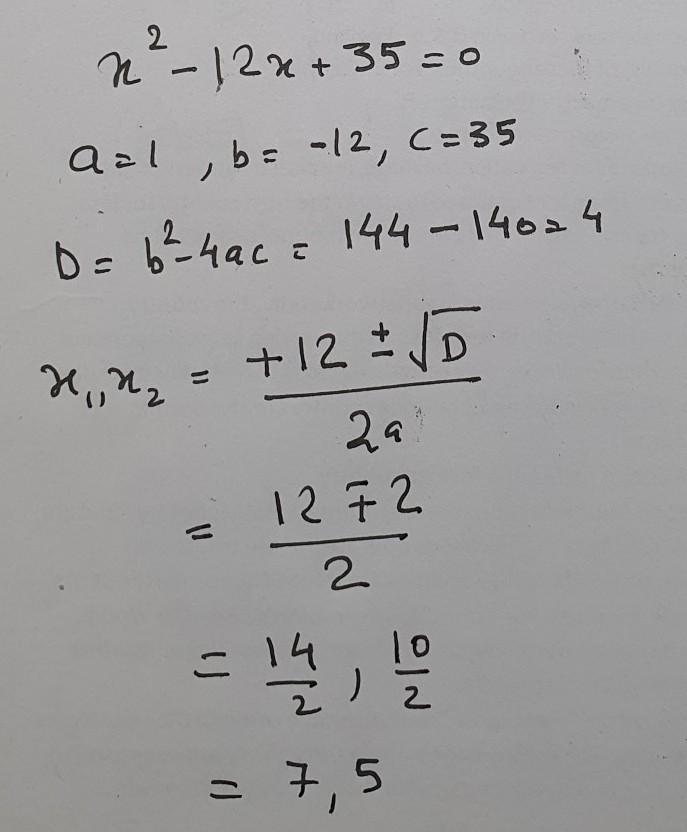 x² - 12x + 35 = 0
a = 1 , b = -12, c = 35
D = b² - 4ac = 144 - 140 = 4
x₁, x₂ = +12 ± √D / 2a
= 12 ∓ 2 / 2
= 14/2 , 10/2
= 7, 5